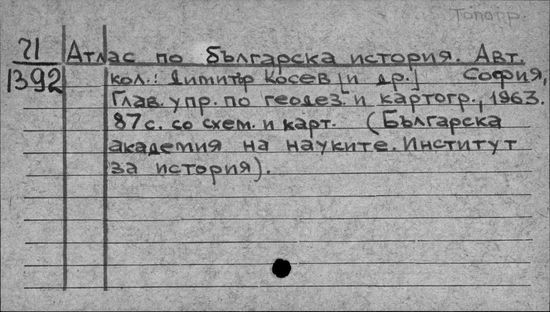 Топогр.
21
1392
Атлас по българска история. Авт.
кол.: Димитър Косев [и др.] София,
Глав. упр. по геодез. и картогр., 1963.
87 с. со схем. и карт. (Българска
академия на науките. Институт
за история).